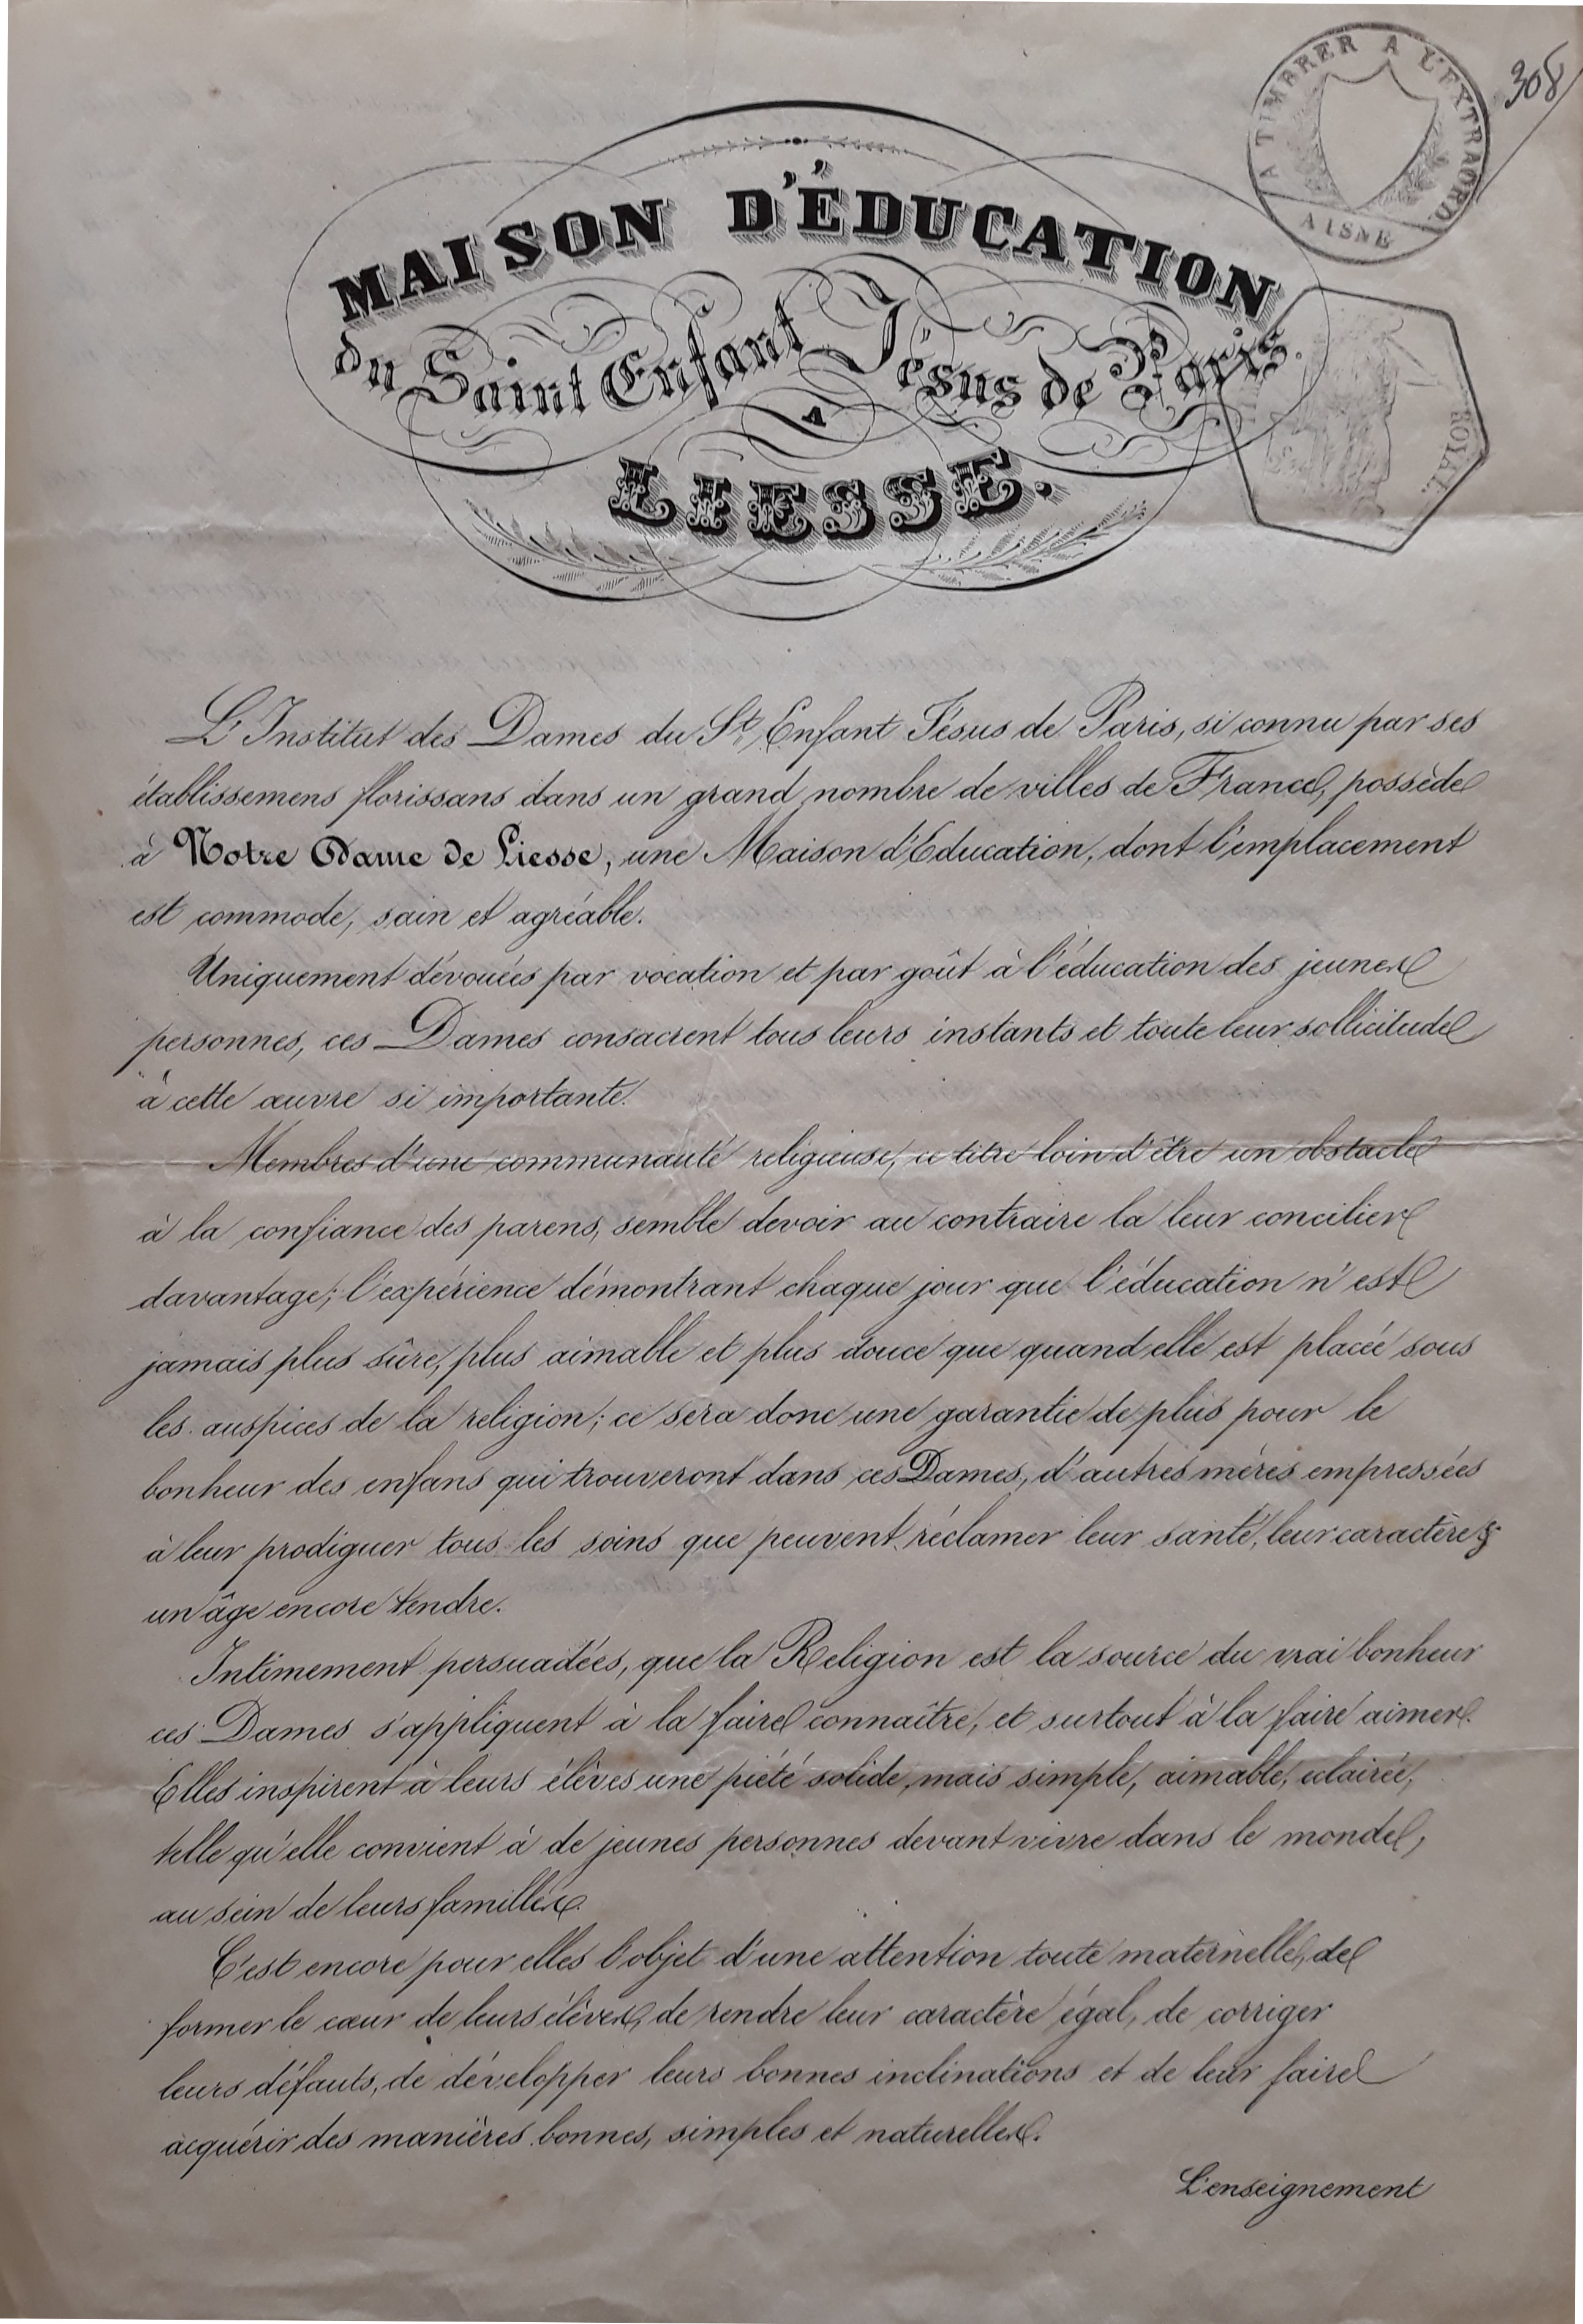 A TIMBRER A L'EXTRAORD.
AISNE
308
MAISON D'ÉDUCATION
du Saint Enfant Jésus de Paris.
A
LIESSE.
ROYAL.
L'Institut des Dames du St. Enfant Jésus de Paris, si connu par ses
établissemens florissans dans un grand nombre de villes de France, possède
à Notre Dame de Liesse, une Maison d'Education, dont l'emplacement
est commode, sain et agréable.
Uniquement dévouées par vocation et par goût à l'éducation des jeunes
personnes, ces Dames consacrent tous leurs instants et toute leur sollicitude
à cette œuvre si importante.
Membres d'une communauté religieuse, ce titre loin d'être un obstacle
à la confiance des parens, semble devoir au contraire la leur concilier
davantage; l'expérience démontrant chaque jour que l'éducation n'est
jamais plus sûre, plus aimable et plus douce que quand elle est placée sous
les auspices de la religion; ce sera donc une garantie de plus pour le
bonheur des enfans qui trouveront dans ces Dames, d'autres mères empressées
à leur prodiguer tous les soins que peuvent réclamer leur santé, leur caractère &
un âge encore tendre.
Intimement persuadées, que la Religion est la source du vrai bonheur
ces Dames s'appliquent à la faire connaître, et surtout à la faire aimer.
Elles inspirent à leurs élèves une piété solide, mais simple, aimable, éclairée,
telle qu'elle convient à de jeunes personnes devant vivre dans le monde,
au sein de leurs familles.
C'est encore pour elles l'objet d'une attention toute maternelle, de
former le cœur de leurs élèves, de rendre leur caractère égal, de corriger
leurs défauts, de développer leurs bonnes inclinations et de leur faire
acquérir des manières bonnes, simples et naturelles.
L'enseignement